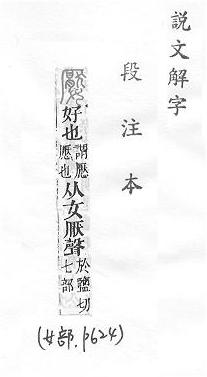 說文解字
段注本
嬮 好也 謂懕懕也 从女厭聲 於鹽切 七部
(女部.p624)